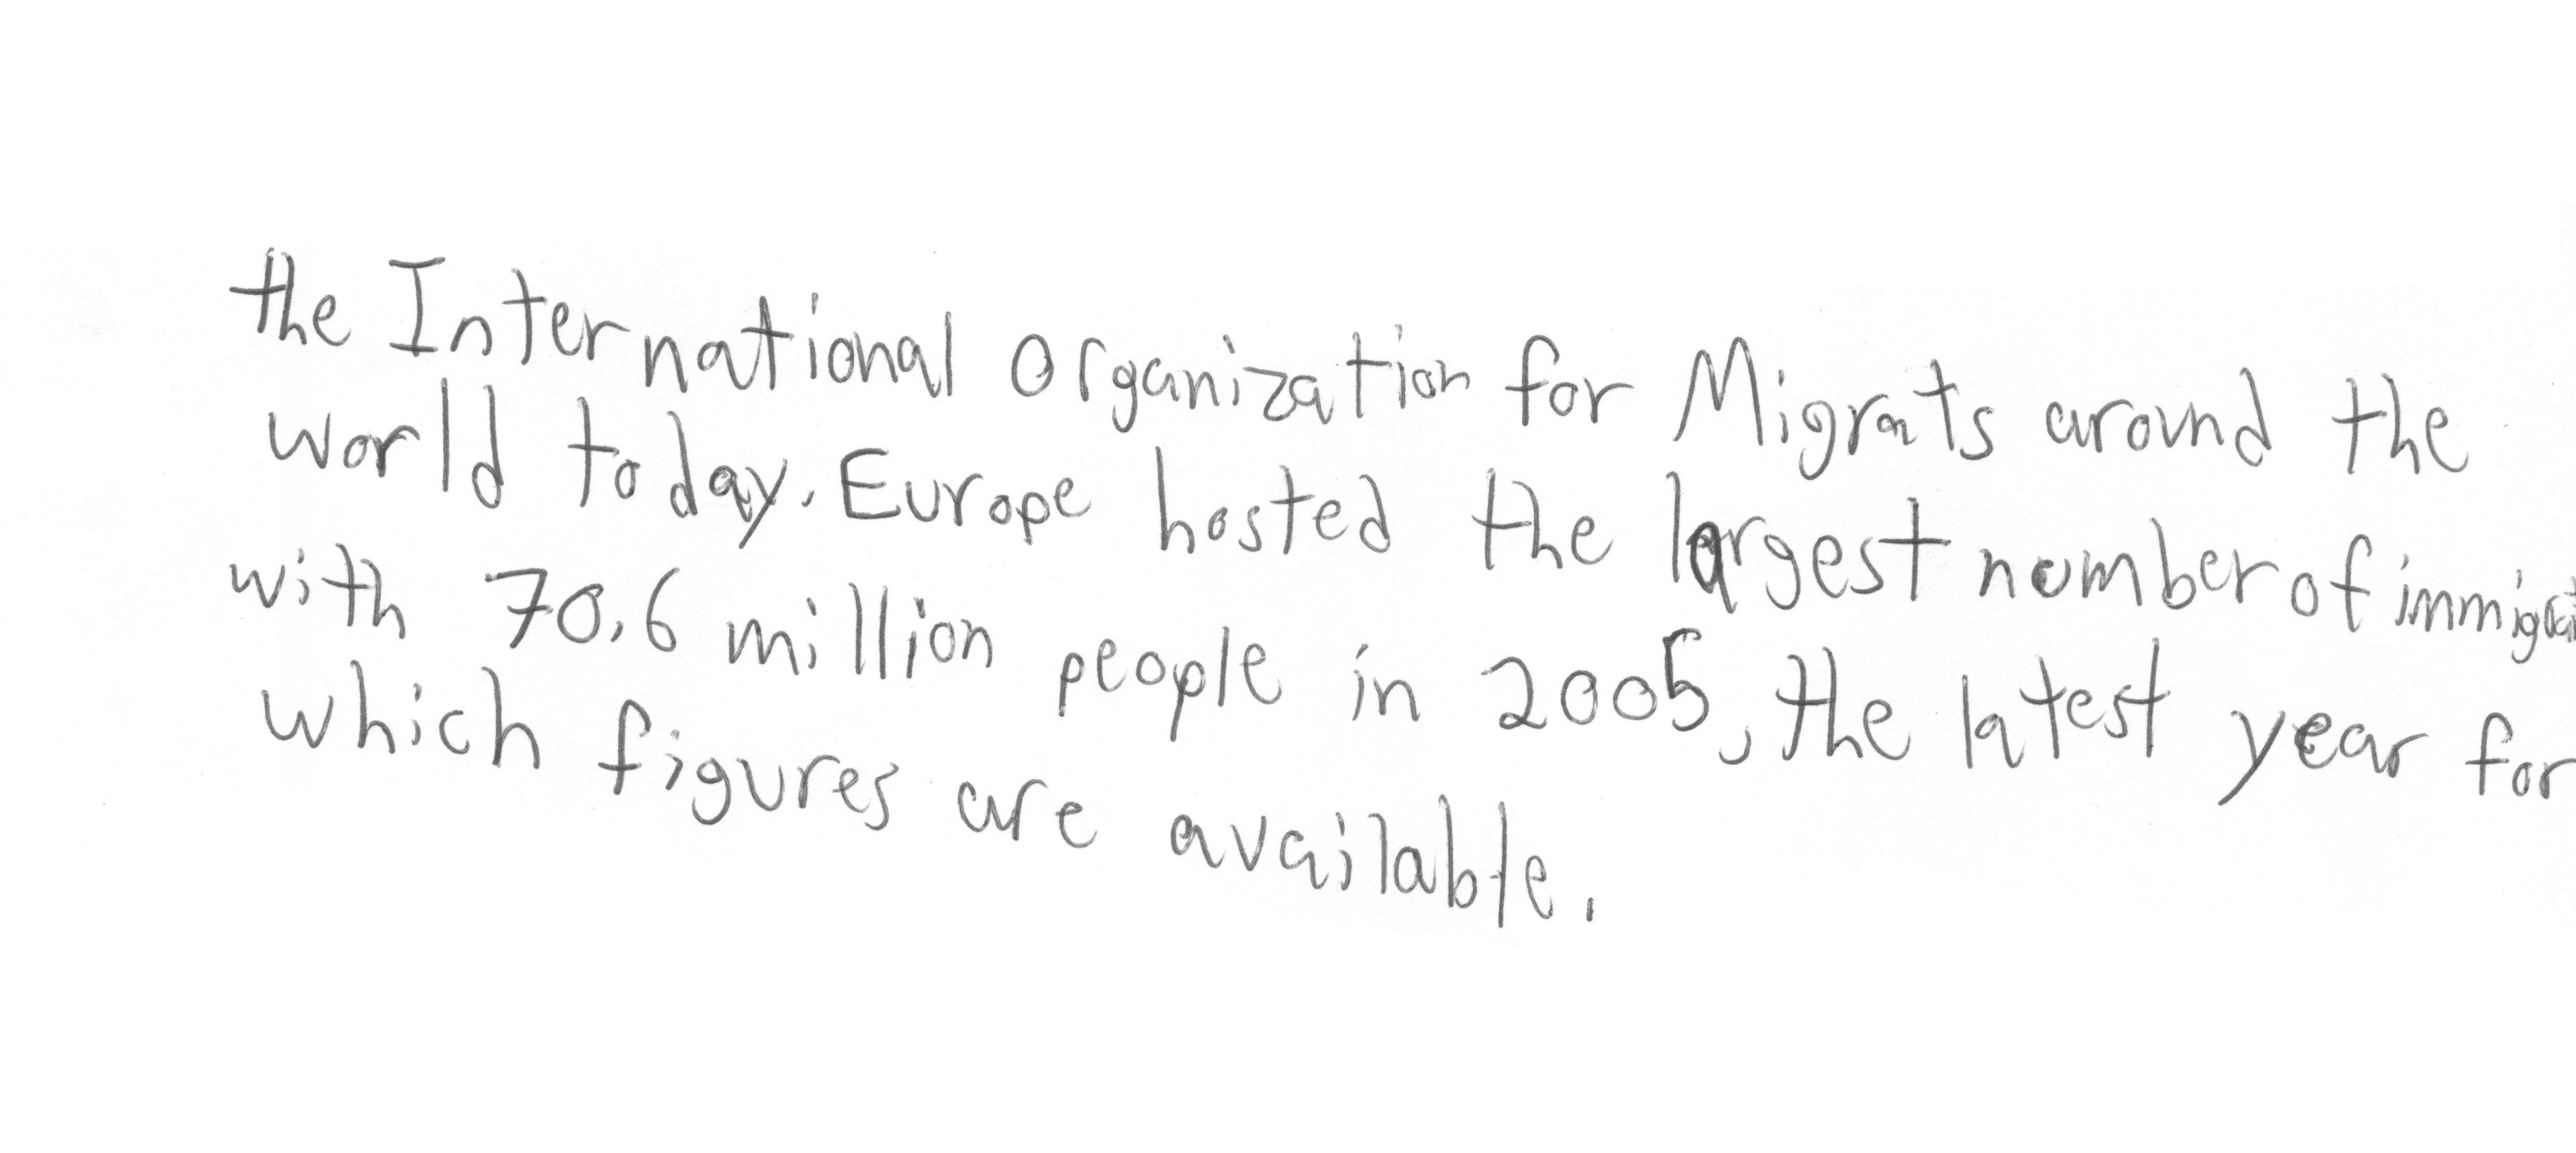 the International Organization for Migrats around the
world today. Europe hosted the largest number of
with 70.6 million people in 2005, the latest year for
which figures are available.